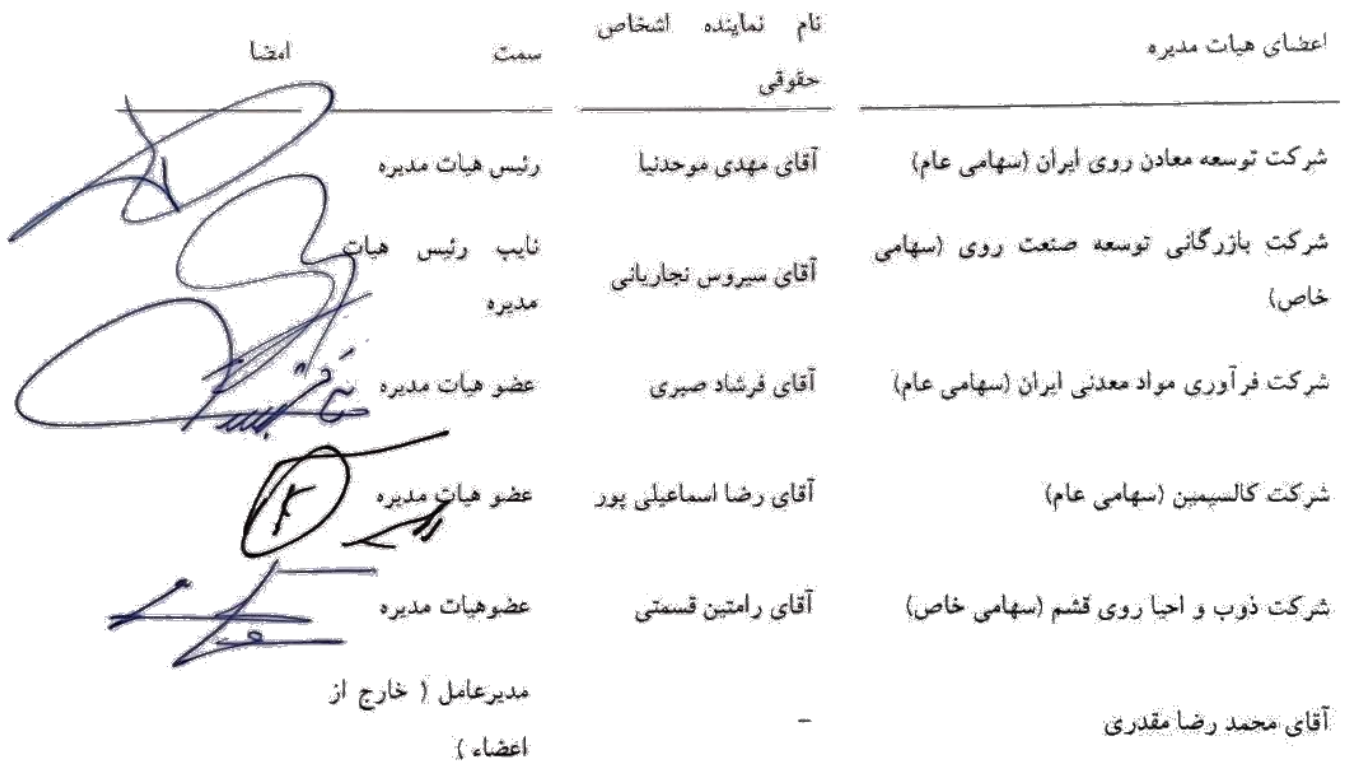 اعضای هیات مدیره
نام نماینده اشخاص
حقوقی
سمت
امضا
شرکت توسعه معادن روی ایران (سهامی عام)
آقای مهدی موحدنیا
رئیس هیات مدیره
شرکت بازرگانی توسعه صنعت روی (سهامی
خاص)
آقای سیروس نجاریانی
نایب رئیس هیات
مدیره
شرکت فرآوری مواد معدنی ایران (سهامی عام)
آقای فرشاد صبری
عضو هیات مدیره
شرکت کالسیمین (سهامی عام)
آقای رضا اسماعیلی پور
عضو هیات مدیره
شرکت ذوب و احیا روی قشم (سهامی خاص)
آقای رامتین قسمتی
عضوهیات مدیره
آقای محمد رضا مقدری
-
مدیرعامل ( خارج از
اعضاء )